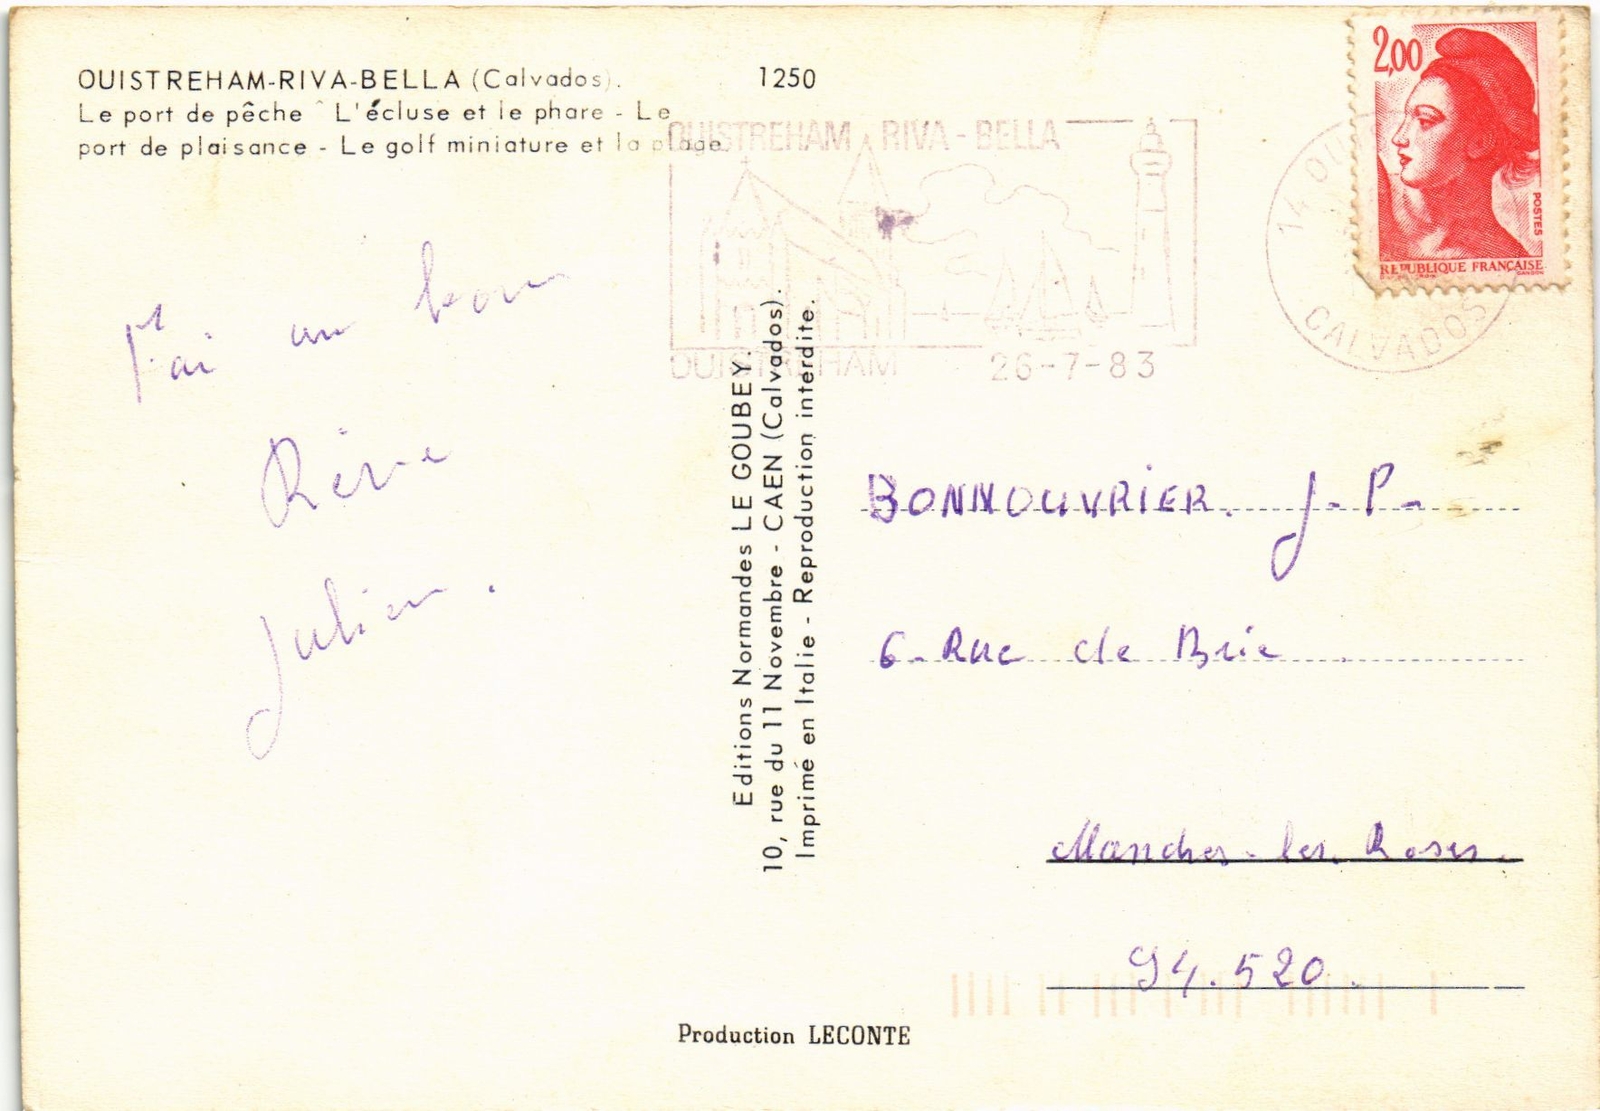 OUISTREHAM-RIVA-BELLA (Calvados).
1250
Le port de pêche - L'écluse et le phare - Le
port de plaisance - Le golf miniature et la plage.
2,00
POSTES
REPUBLIQUE FRANÇAISE
OUISTREHAM RIVA-BELLA
OUISTREHAM 26-7-83
14 OUI
CALVADOS
J'ai un bon
Rêve
Julien.
Editions Normandes LE GOUBEY.
10, rue du 11 Novembre - CAEN (Calvados).
Imprimé en Italie - Reproduction interdite.
BONNOUVRIER. J-P-
6-Rue de Brie
Mandres-les-Roses.
94.520.
Production LECONTE